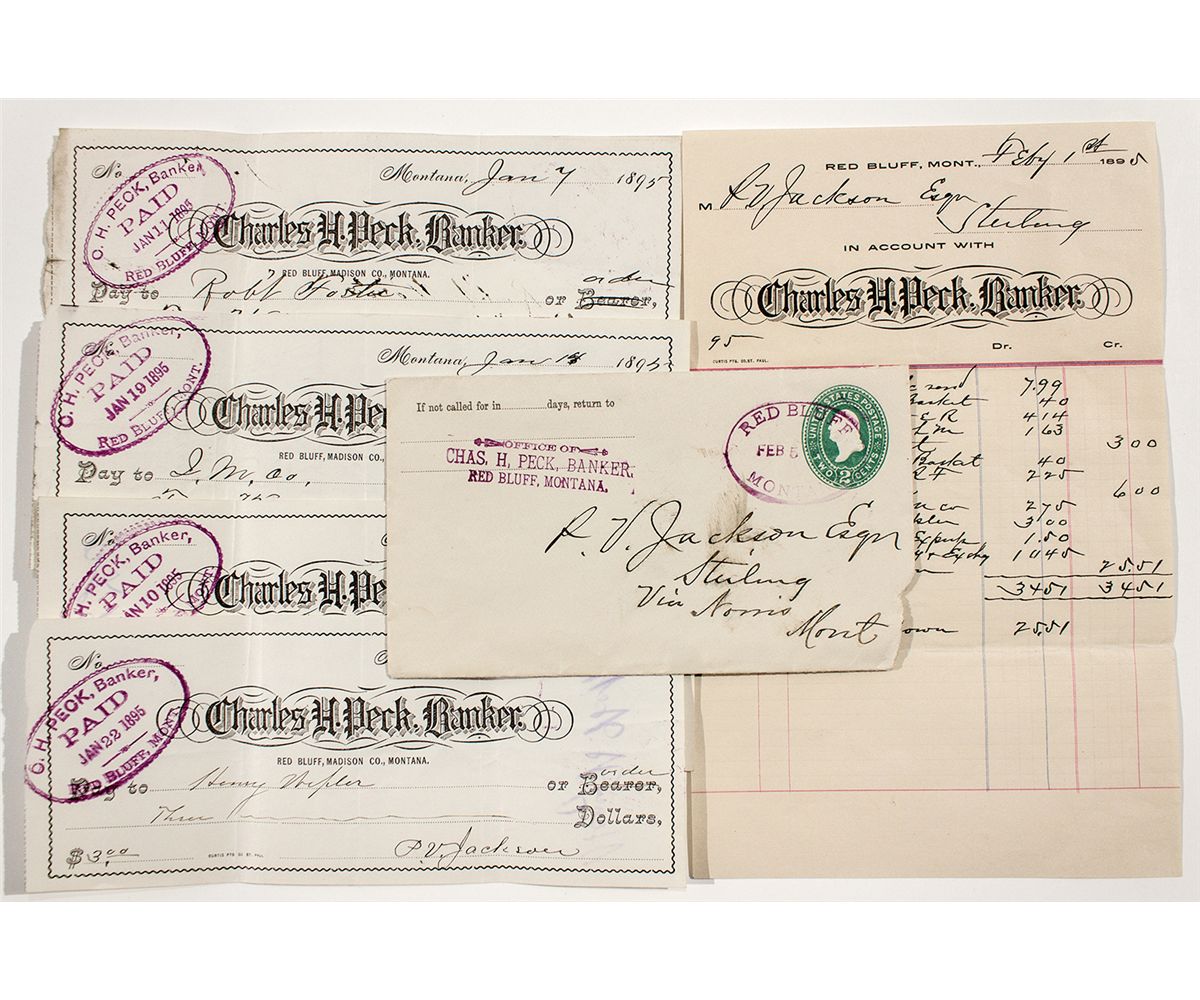 No.
C. H. PECK, Banker,
PAID
JAN 11 1895
RED BLUFF, MONT.
Montana, Jan 7 1895
Charles H. Peck, Banker.
RED BLUFF, MADISON CO., MONTANA.
order
Pay to Robt Foster or Bearer,
No.
C. H. PECK, Banker,
PAID
JAN 19 1895
RED BLUFF, MONT.
Montana, Jan 1895
Charles H. Pec
RED BLUFF, MADISON CO.,
Pay to I. M. Co,
No.
H. PECK, Banker,
PAID
JAN 10 1895
Charles H. Pec
No.
C. H. PECK, Banker,
PAID
JAN 22 1895
RED BLUFF, MONT.
Charles H. Peck, Banker.
RED BLUFF, MADISON CO., MONTANA.
order
Pay to Henry or Bearer,
Three Dollars,
$ 3.00
CURTIS PTG CO ST. PAUL
P. V. Jackson
If not called for in days, return to
OFFICE OF
CHAS. H. PECK, BANKER,
RED BLUFF, MONTANA,
RED BLUFF
FEB 5
MONTA
UNITED STATES POSTAGE
TWO 2 CENTS
P. V. Jackson Esqr
Sterling
Via Norris
Mont
RED BLUFF, MONT., Feby 1st 1895
M P V Jackson Esqr
Sterling
IN ACCOUNT WITH
Charles H. Peck, Banker.
95
Dr. Cr.
CURTIS PTG. CO. ST. PAUL.
7.99
Basket 40
& R 414
I M 163
300
Basket 40
225
600
n co 275
3.00
1.50
& Exchg 1045
25.51
3451 3451
own 25.51